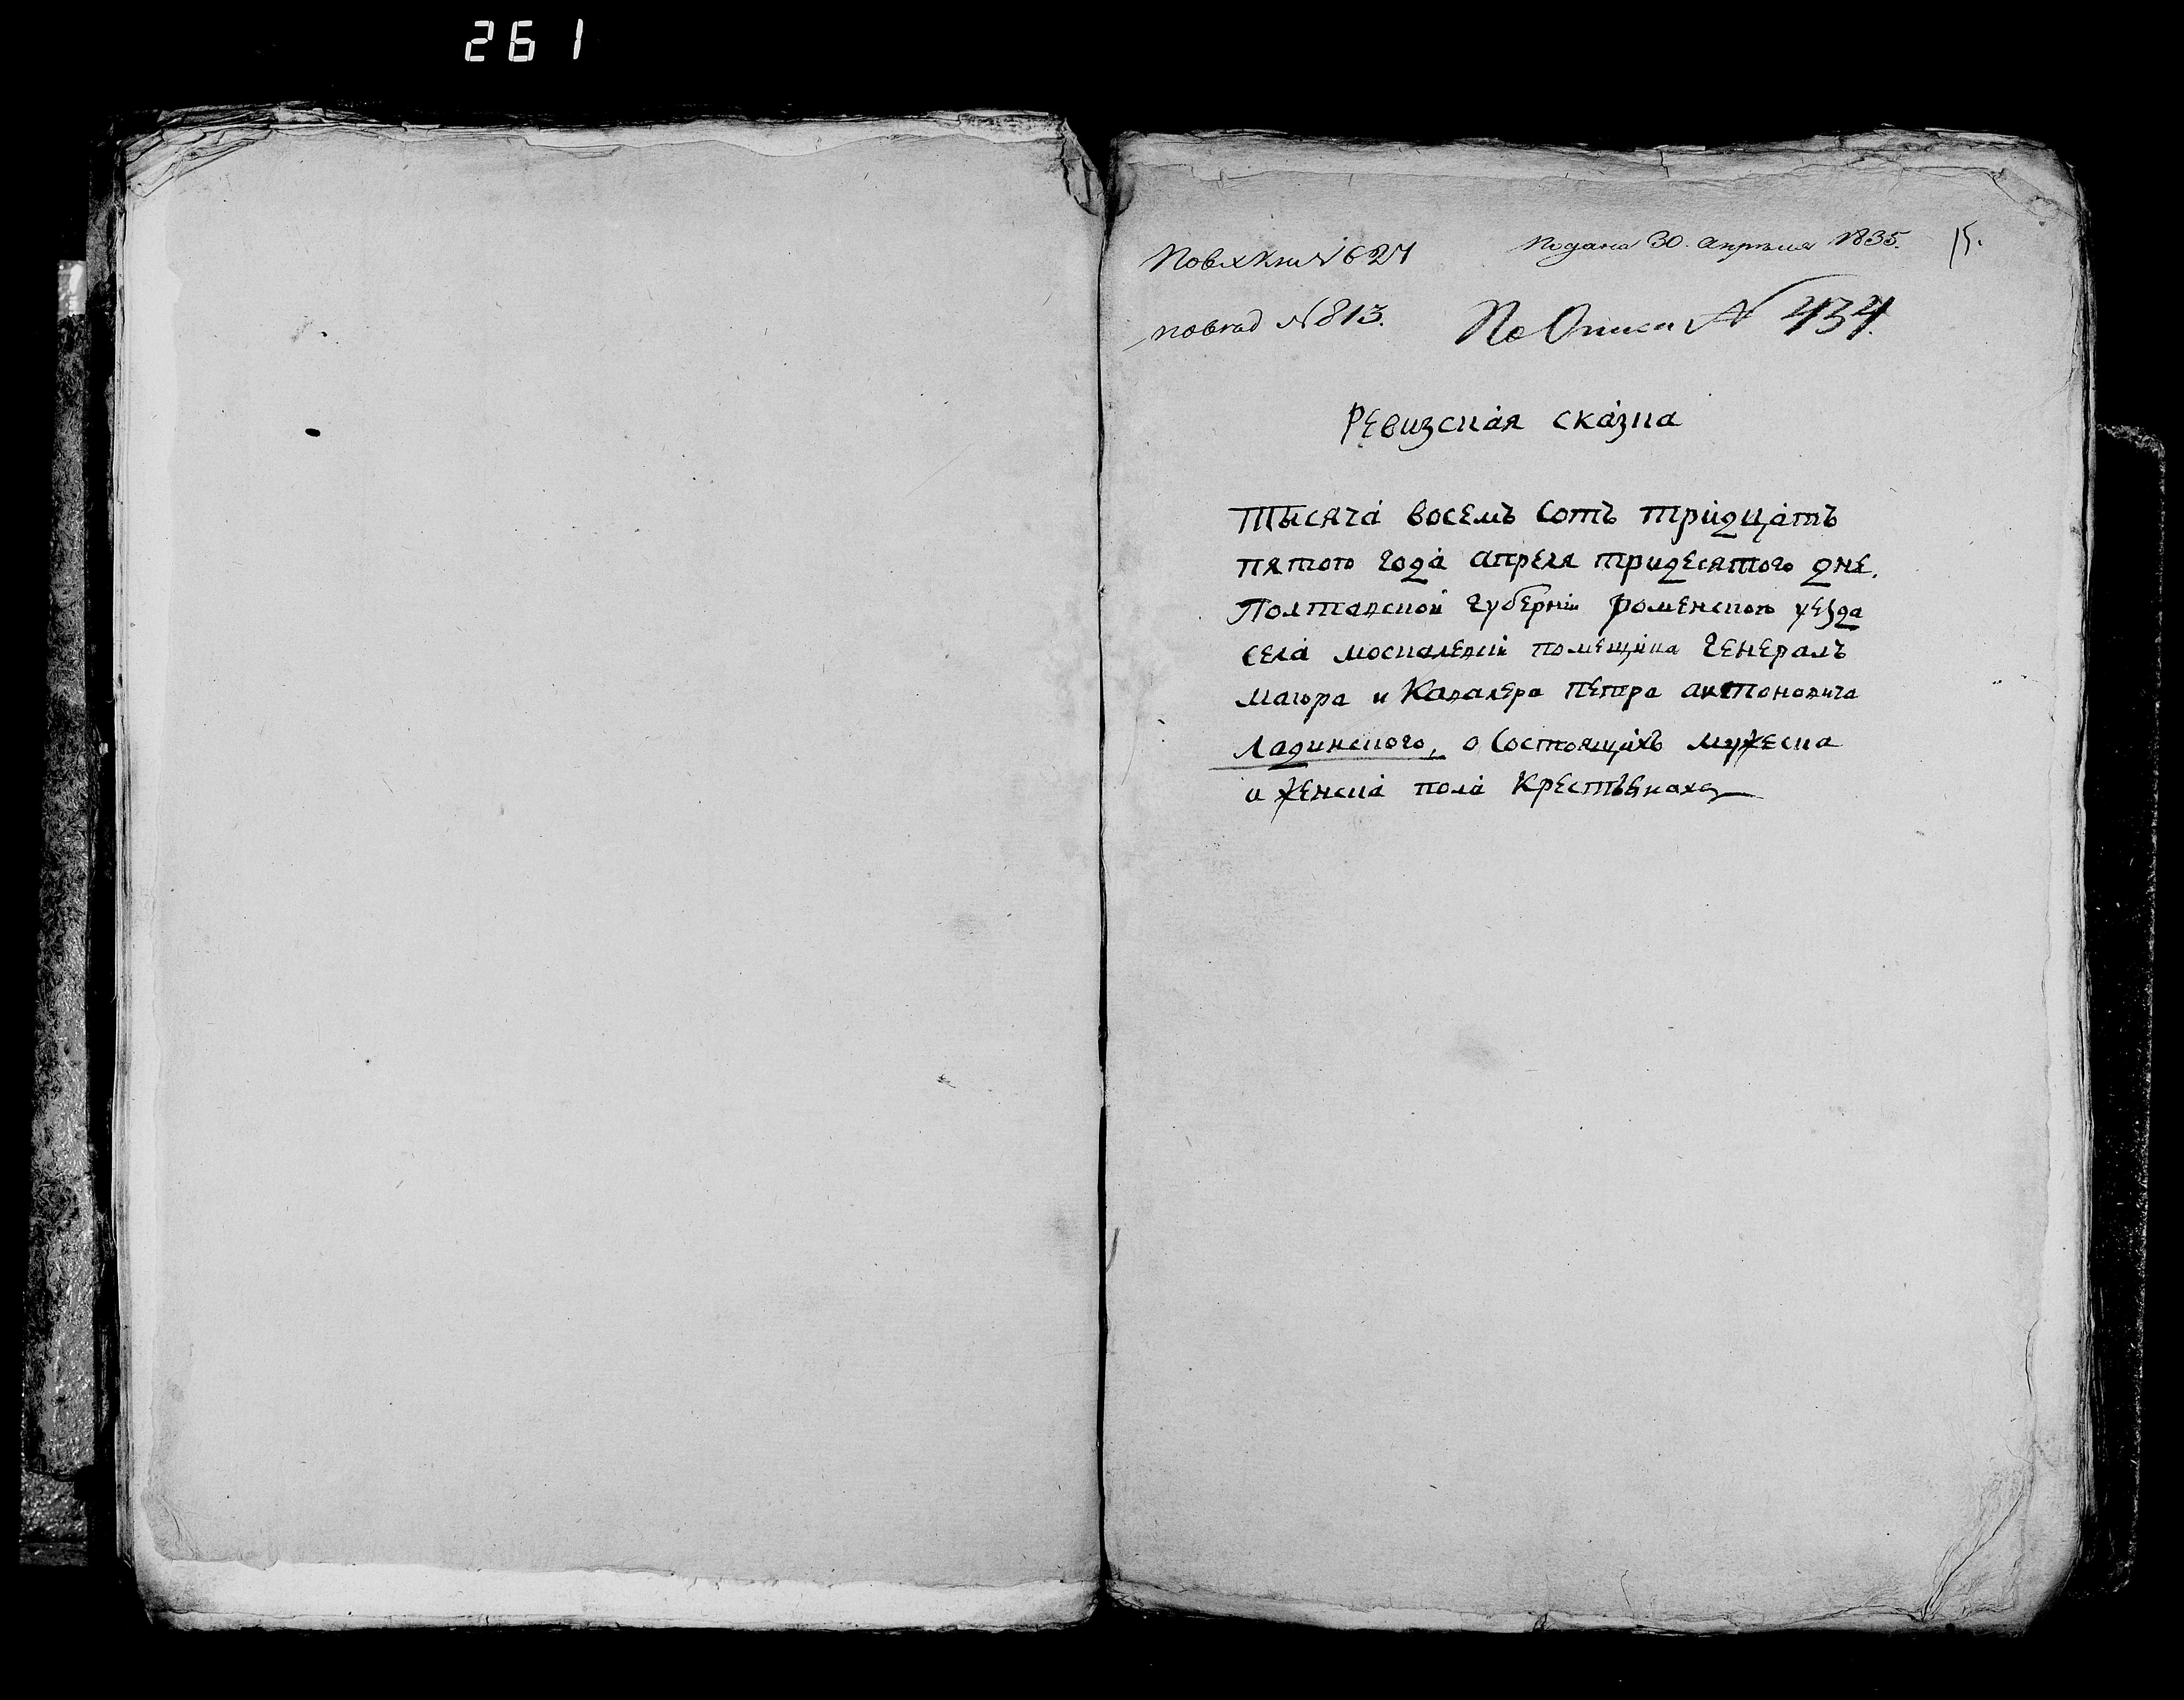 261
Повх Кни № 627
подана 30. апреля 1835.
15.
повгод № 813.
По Описи № 434.
Ревизская сказка
Тысяча восемъ сотъ тридцатъ
пятого года апреля тридесятого дне.
Полтавской губерніи роменского уезда
села москалевки помещика генералъ
маіора и Кавалера петра антоновича
Ладинского, о состоящихъ мужеска
и женска пола крестьянахъ